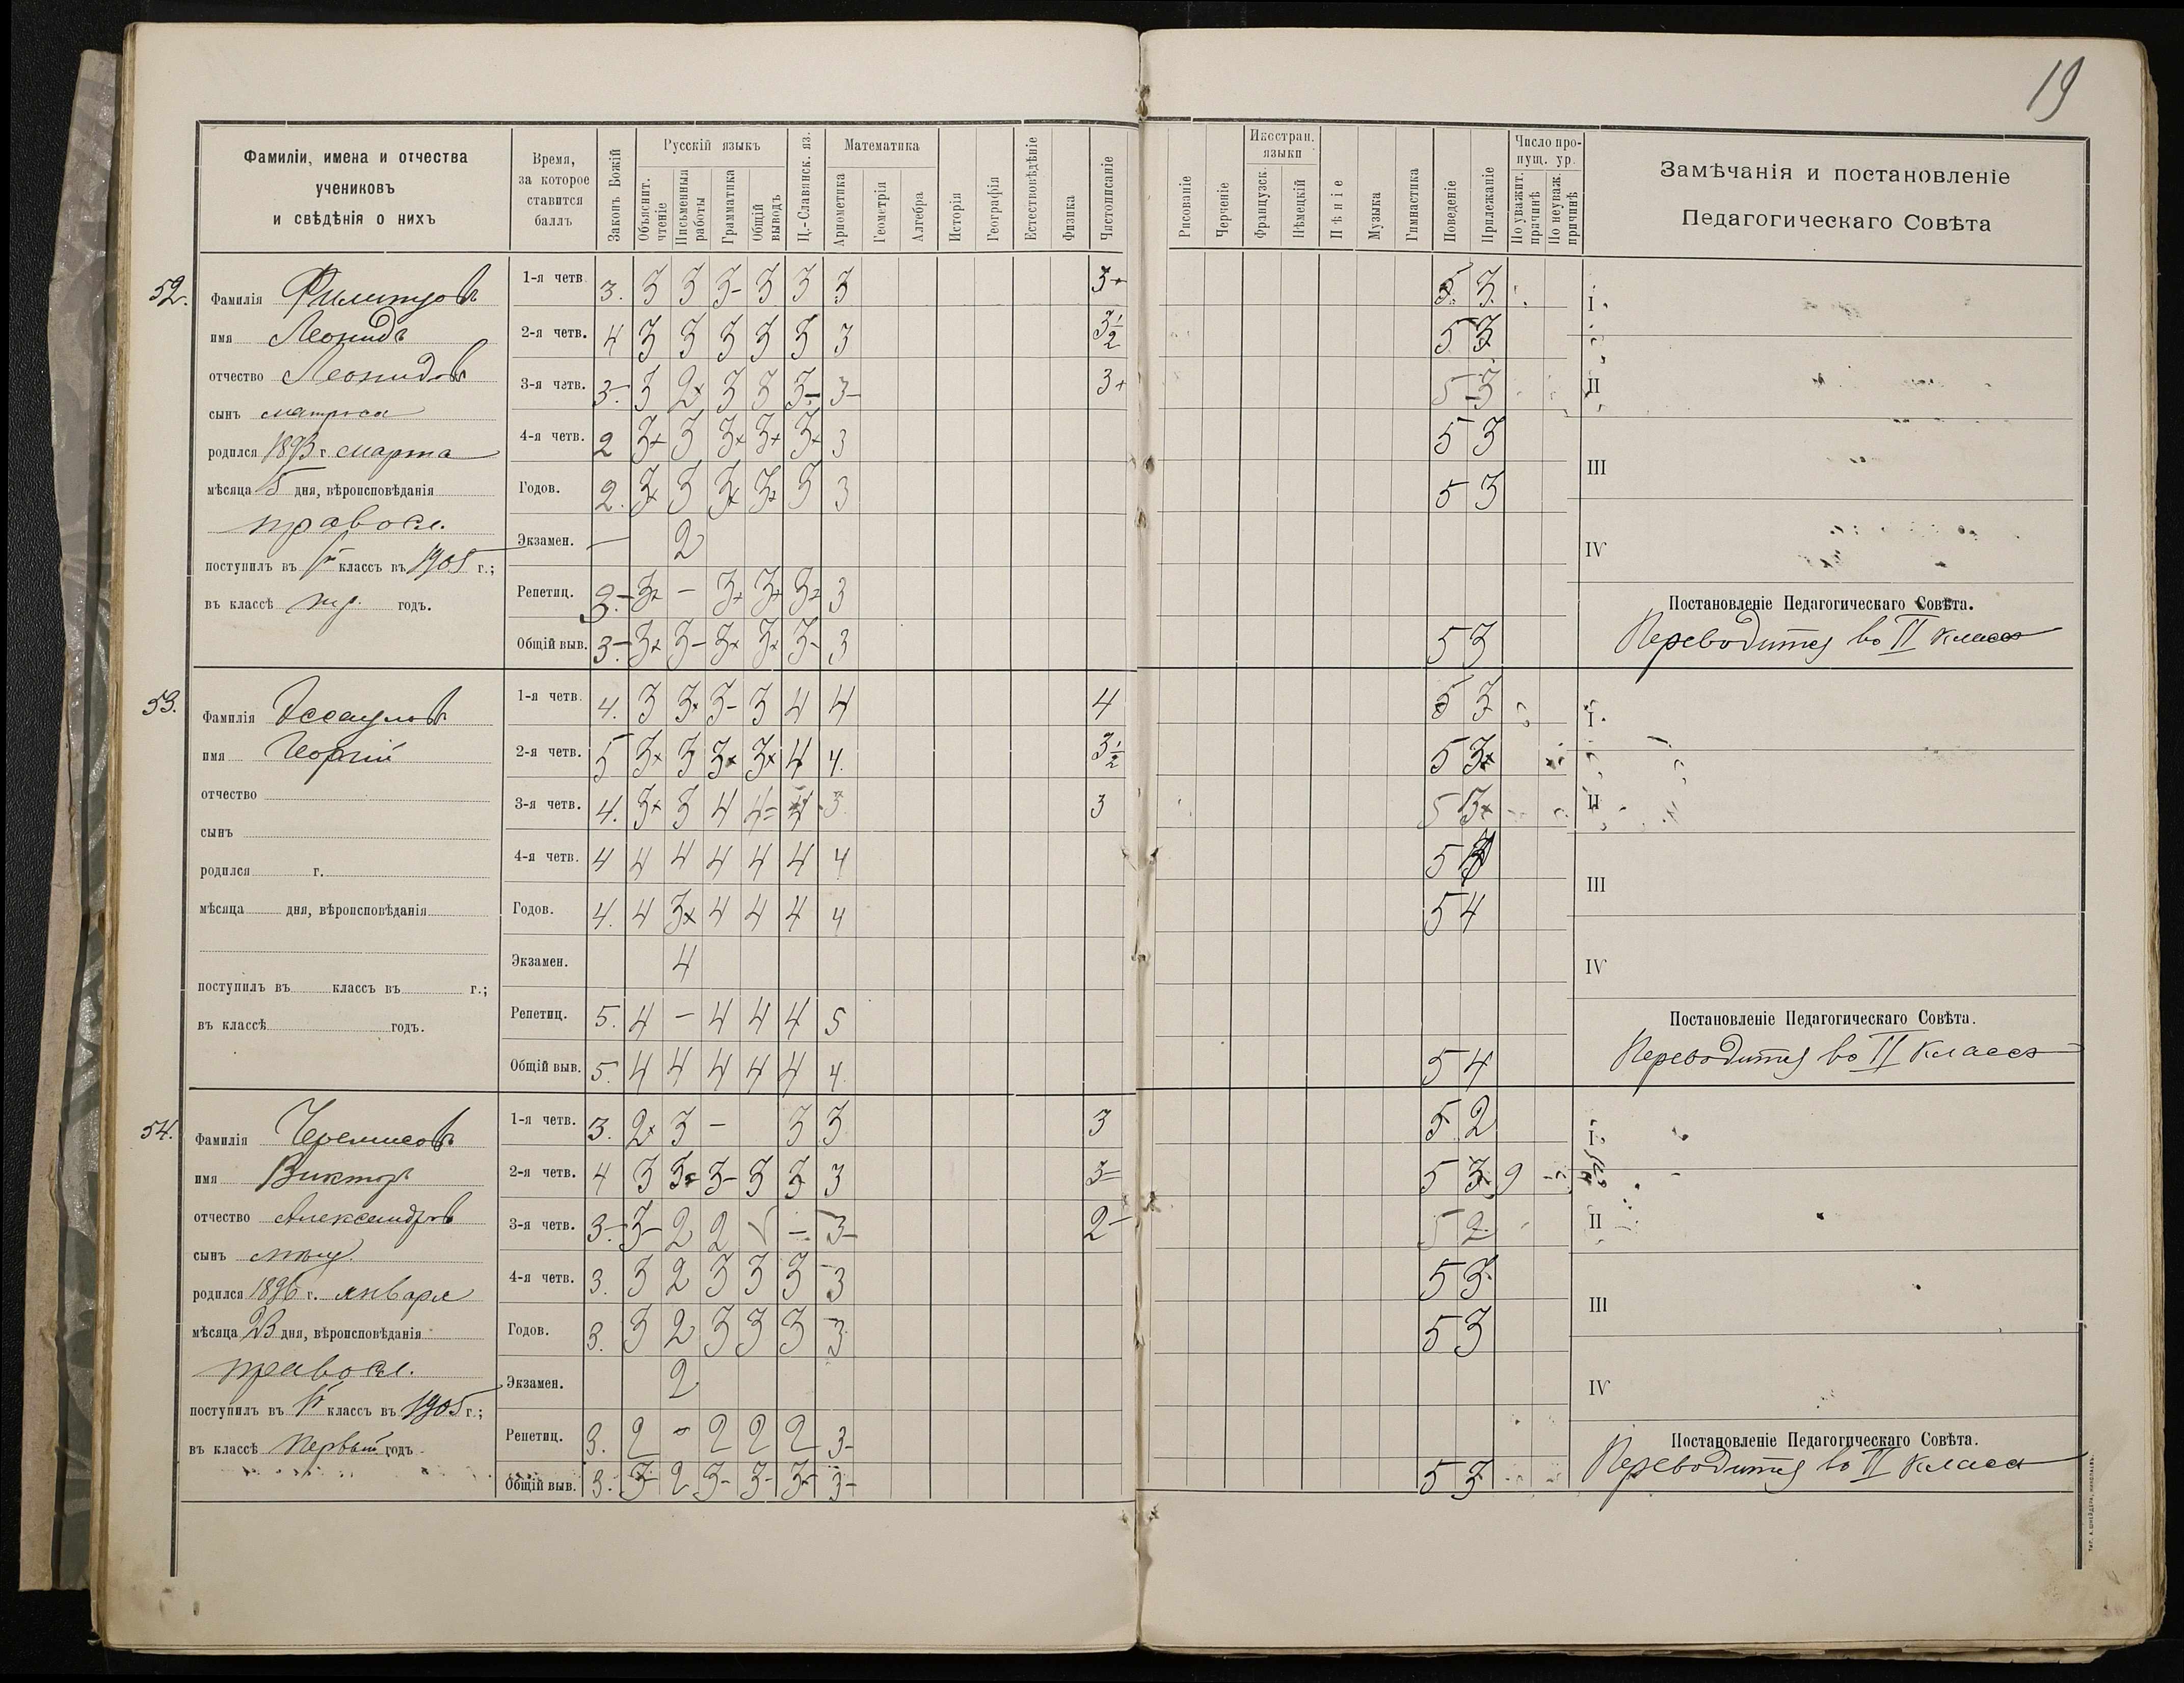 19
Фамиліи, имена и отчества
учениковъ
и свѣдѣнія о нихъ
Время,
за которое
ставится
баллъ
Законъ Божій
Русскій языкъ
Объяснит.
чтеніе
Письменныя
работы
Грамматика
Общій
выводъ
Ц.-Славянск. яз.
Математика
Ариѳметика
Геометрія
Алгебра
Исторія
Географія
Естествовѣдѣніе
Физика
Чистописаніе
Рисованіе
Черченіе
Иностран.
языки
Французск.
Нѣмецкій
Пѣніе
Музыка
Гимнастика
Поведеніе
Прилежаніе
Число про-
пущ. ур.
По уважит.
причинѣ
По неуваж.
причинѣ
Замѣчанія и постановленіе
Педагогическаго Совѣта
52.
Фамилія
имя Леонидъ
отчество Леонидовъ
сынъ матроса
родился 1893 г. марта
мѣсяца 5 дня, вѣроисповѣданія
правосл.
поступилъ въ классъ въ 1905 г.;
въ классѣ годъ.
1-я четв. 3. 3 3 3- 3 3 3 3+ 5. 3. I
2-я четв. 4 3 3 3 3 3 3 3½ 5 3
3-я четв. 3- 3 2+ 3 3 3- 3- 3+ 5 3 II
4-я четв. 2 3+ 3 3+ 3+ 3+ 3 5 3 III
Годов. 2. 3+ 3 3+ 3+ 3 3 5 3
Экзамен. — 2 IV
Репетиц. 3.- 3+ — 3+ 3+ 3+ 3
Общій выв. 3.- 3+ 3- 3+ 3+ 3- 3 5 3
Постановленіе Педагогическаго Совѣта.
Переводится во II классъ
53.
Фамилія Эссауловъ
имя Георгій
отчество
сынъ
родился г.
мѣсяца дня, вѣроисповѣданія
поступилъ въ классъ въ г.;
въ классѣ годъ.
1-я четв. 4. 3 3+ 3- 3 4 4 4 5 3 I
2-я четв. 5 3+ 3 3+ 3+ 4 4. 3½ 5 3+
3-я четв. 4. 3+ 3 4 4= 4 3 3 5 3+ II
4-я четв. 4 4 4 4 4 4 4 5 III
Годов. 4. 4 3+ 4 4 4 4 5 4
Экзамен. 4 IV
Репетиц. 5. 4 — 4 4 4 5
Общій выв. 5. 4 4 4 4 4 4. 5 4
Постановленіе Педагогическаго Совѣта.
Переводится во II классъ
54.
Фамилія Черемисовъ
имя Викторъ
отчество Александровъ
сынъ мѣщ.
родился 1896 г. января
мѣсяца 23 дня, вѣроисповѣданія
правосл.
поступилъ въ классъ въ 1905 г.;
въ классѣ первый годъ
1-я четв. 3. 2+ 3 — 3 3 3 5 2 I
2-я четв. 4 3 3- 3 3 3 3= 5 3 9
3-я четв. 3- 3- 2 2 — 3- 2- 5 2 II
4-я четв. 3. 3 2 3 3 3 3 5 3 III
Годов. 3. 3 2 3 3 3 3 5 3
Экзамен. 2 IV
Репетиц. 3. 2 — 2 2 2 3-
Общій выв. 3. 3- 2 3- 3- 3- 3- 5 3
Постановленіе Педагогическаго Совѣта.
Переводится во II классъ